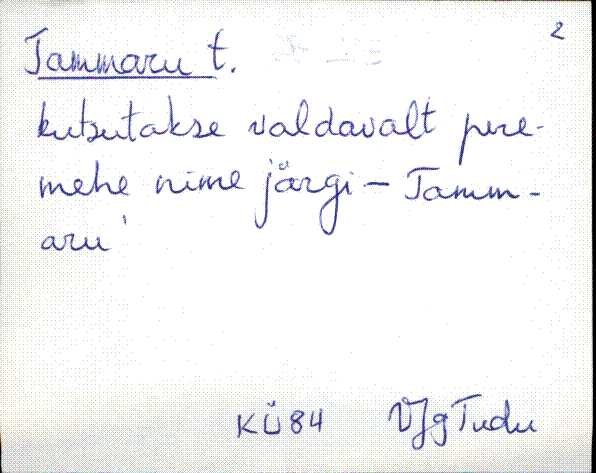 2
Tammaru t.
kutsutakse valdavalt pere-
mehe nime järgi - Tamm-
aru'
KÜ84 VJg Tudu